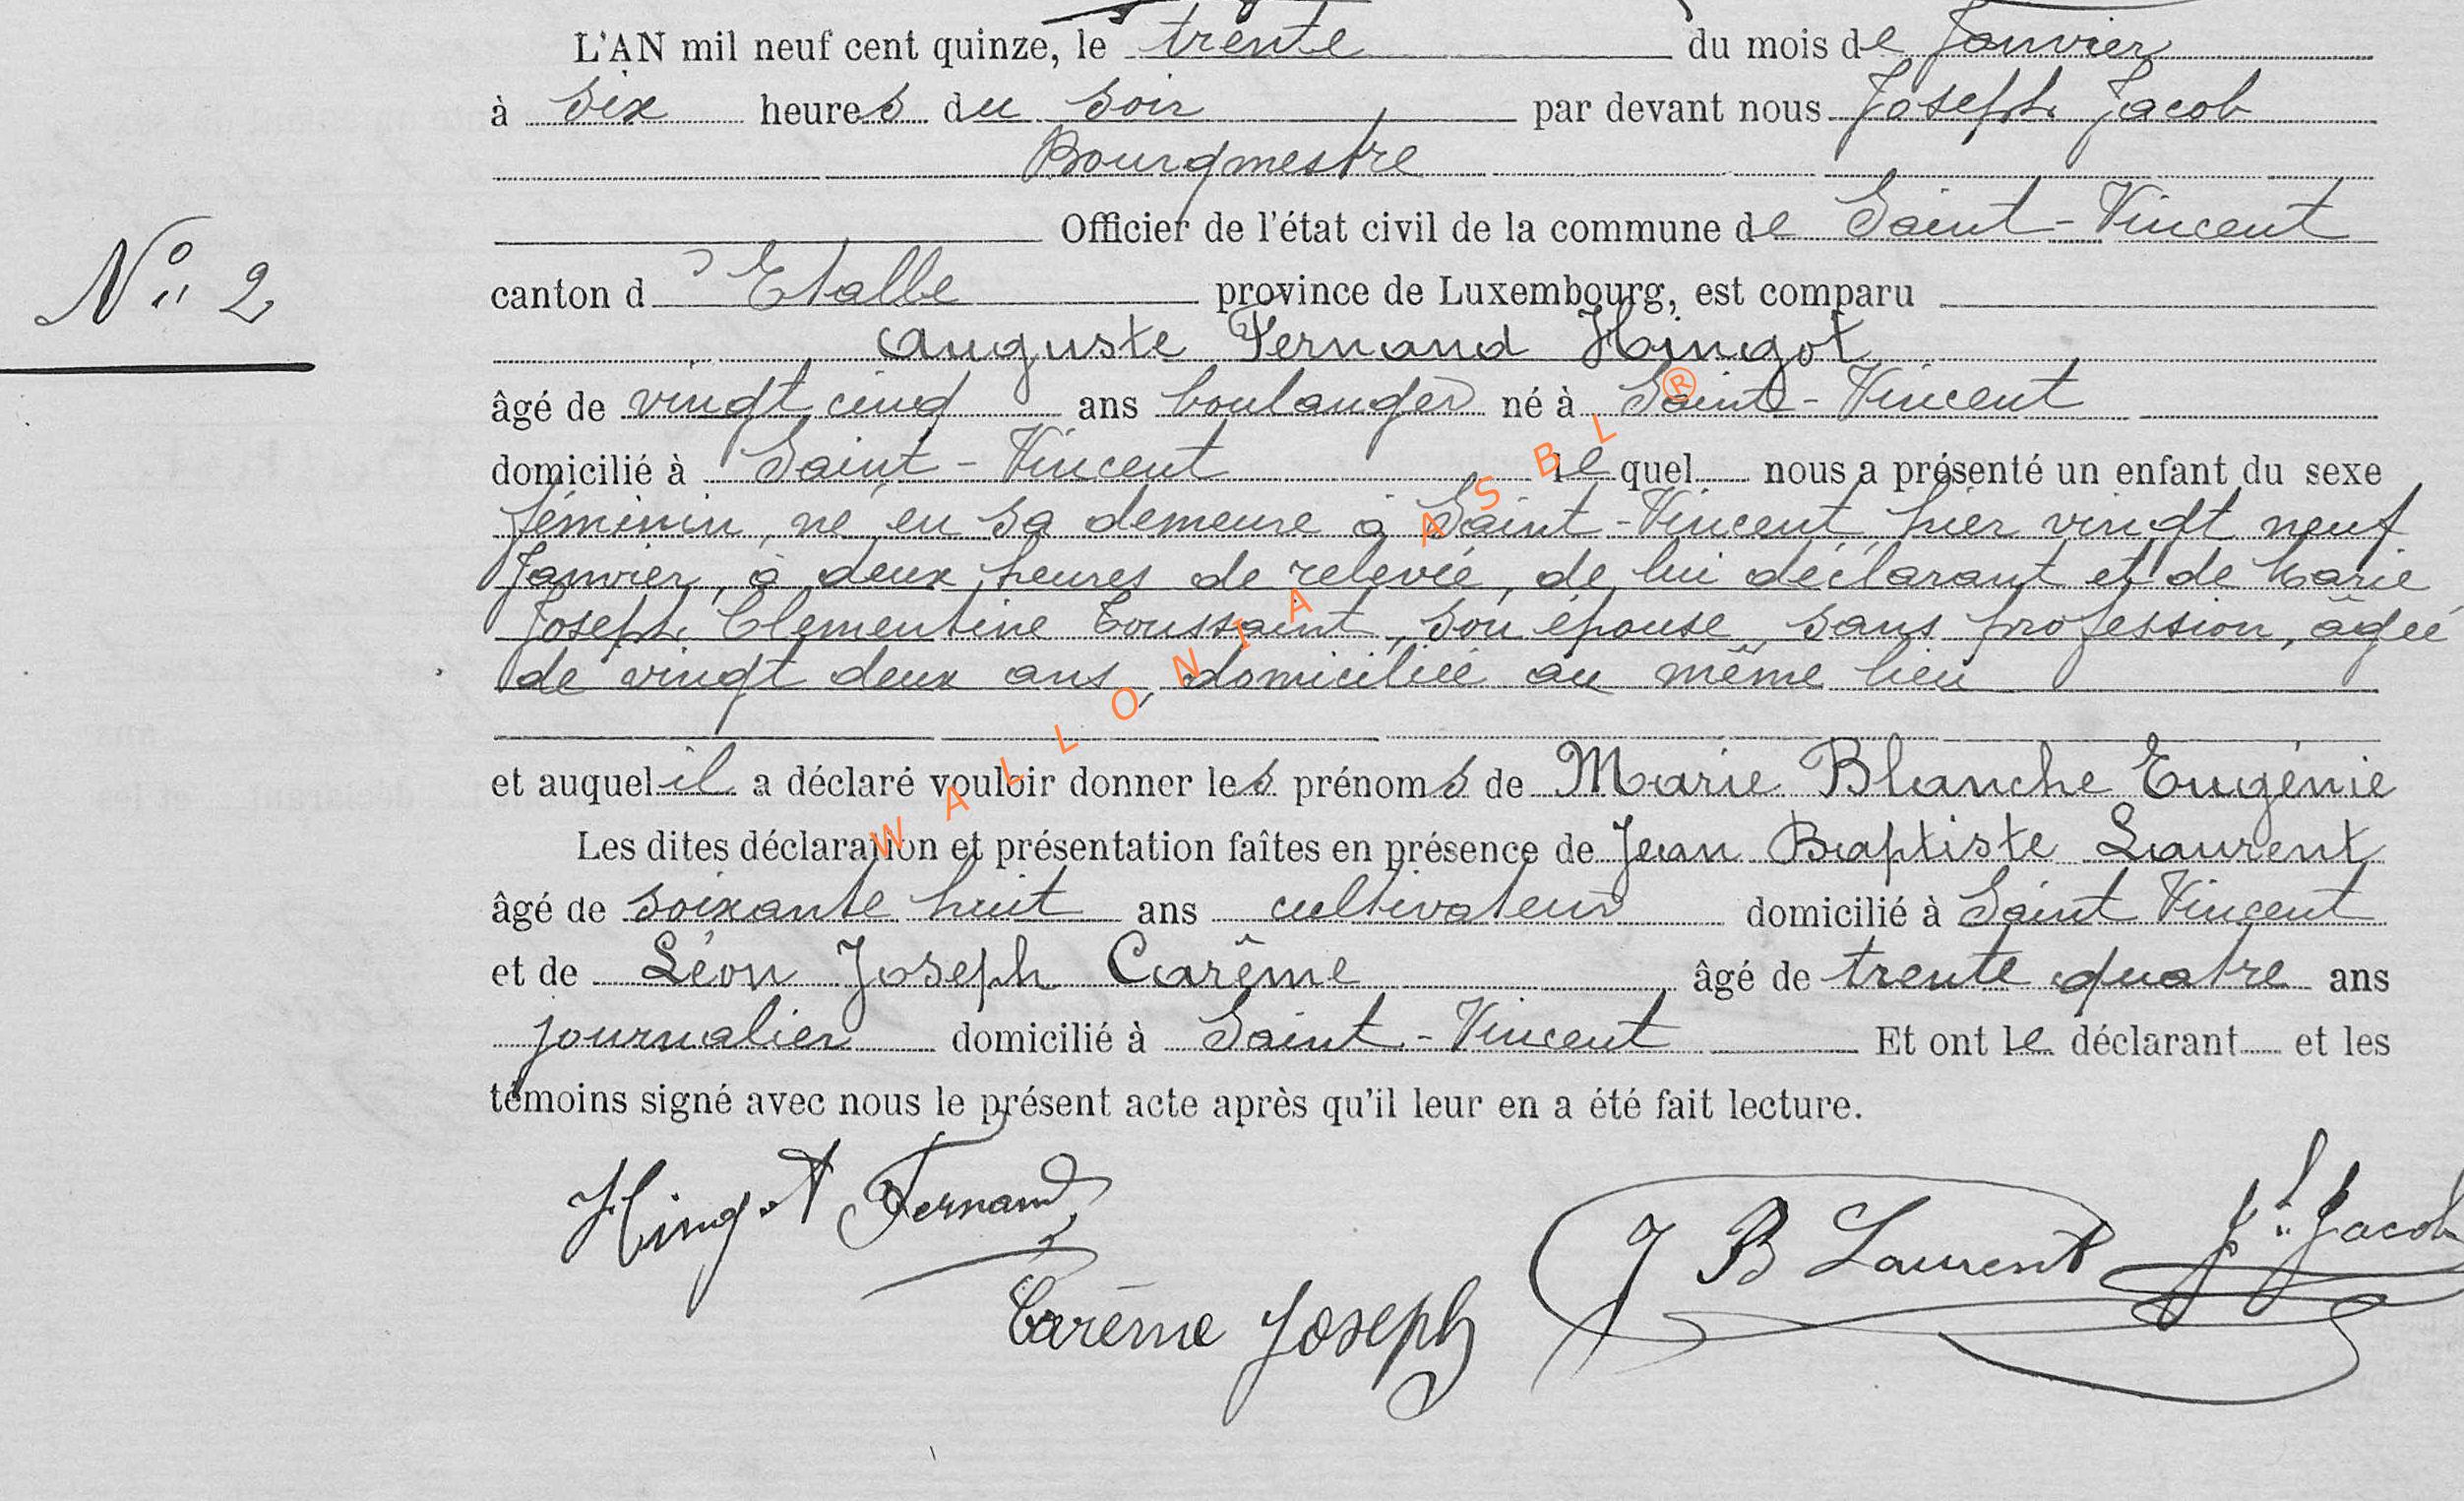 L'AN mil neuf cent quinze, le trente du mois de Janvier
à six heures du soir par devant nous Joseph Jacob
Bourgmestre
Officier de l'état civil de la commune de Saint-Vincent
N° 2
canton d'Etalle province de Luxembourg, est comparu
Auguste Fernand Hingot
âgé de vingt cinq ans boulanger né à Saint-Vincent
domicilié à Saint-Vincent lequel nous a présenté un enfant du sexe
féminin, né en sa demeure à Saint-Vincent, hier vingt neuf
Janvier, à deux heures de relevée, de lui déclarant et de Marie
Joseph Clementine Toussaint, son épouse, sans profession, âgée
de vingt deux ans, domiciliée au même lieu
et auquel il a déclaré vouloir donner les prénoms de Marie Blanche Eugénie
Les dites déclaration et présentation faîtes en présence de Jean Baptiste Laurent
âgé de soixante huit ans cultivateur domicilié à Saint Vincent
et de Léon Joseph Carême âgé de trente quatre ans
journalier domicilié à Saint-Vincent Et ont le déclarant et les
témoins signé avec nous le présent acte après qu'il leur en a été fait lecture.
Hingot Fernand
J B Laurent
Jh Jacob
Carême Joseph
WALLONIA ASBL ®